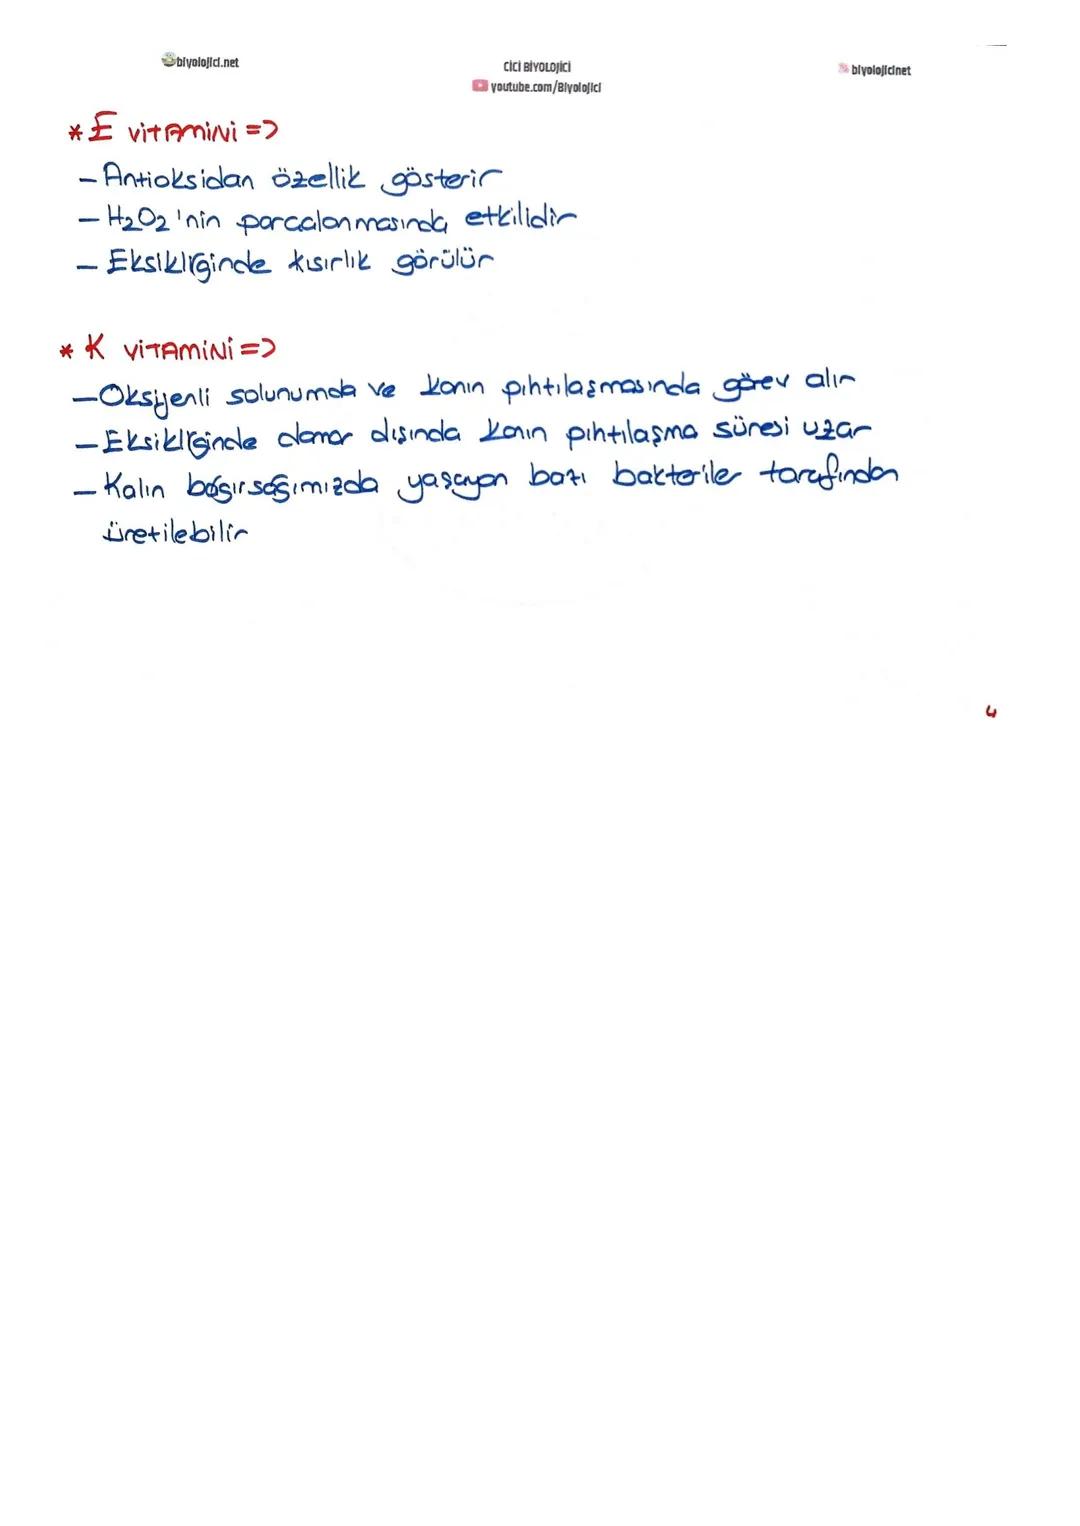 biyolojici.net
CİCİ BİYOLOJİCİ
youtube.com/Biyolojici
biyolojicinet
* E vitAmiNi =>
- Antioksidan özellik gösterir
- H₂O₂'nin parcalanmasında etkilidir
- Eksikliğinde kısırlık görülür
* K viTAmiNi =>
- Oksijenli solunumda ve kanın pıhtılaşmasında görev alır
- Eksikliğinde damar dışında kanın pıhtılaşma süresi uzar
- Kalın bağırsağımızda yaşayan bazı bakteriler tarafından
üretilebilir
4